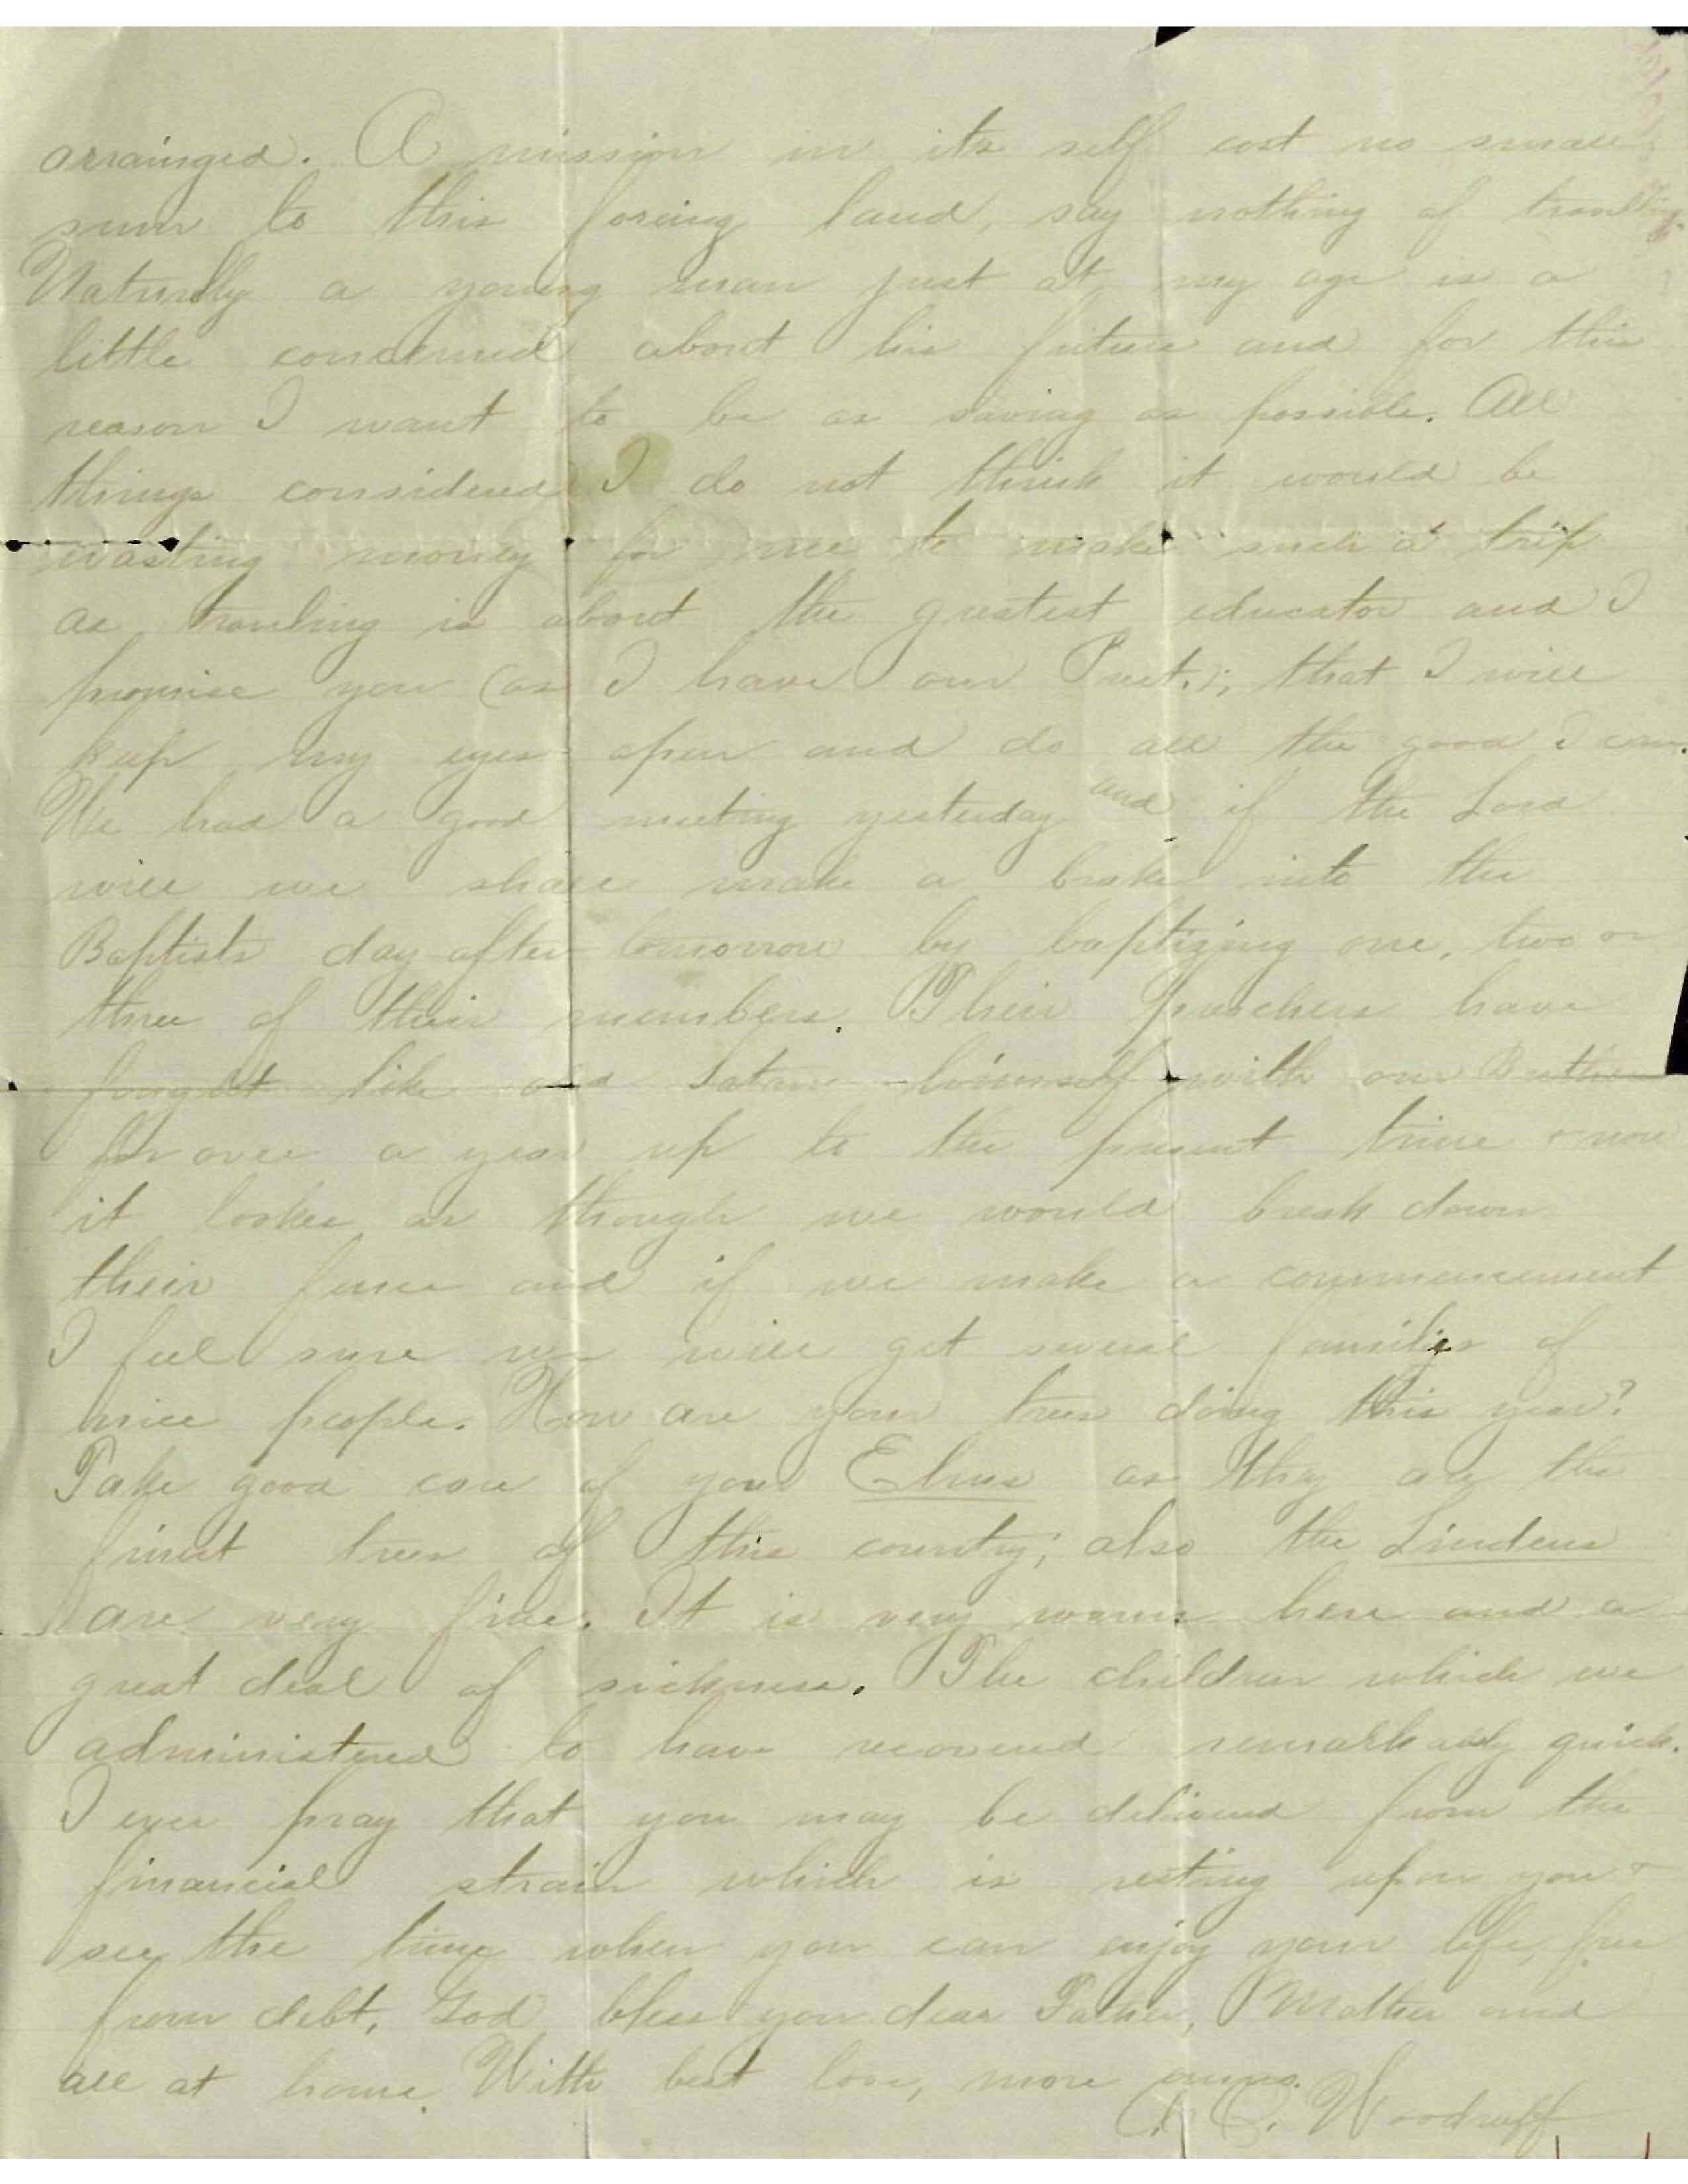 arrainged. A mission in its self cost no small
sum to this foreing land, say nothing of travelling.
Naturally a young man just at my age is a
little concerned about his future and for this
reason I want to be as saving as possible. All
things considered I do not think it would be
wasting money for me to make such a trip
as traveling is about the greatest educator and I
promise you (as I have our Prest.); that I will
keep my eyes open and do all the good I can.
We had a good meeting yesterday and if the Lord
will we shall make a brake into the
Baptists day after tomorrow by baptizing one, two or
three of their members. Their preachers have
fought like old Satan himself with our
for over a year up to the present time & now
it lookes as though we would break down
their fence and if we make a commencement
I feel sure we will get several families of
nice people. How are your trees doing this year?
Take good care of your Elms as they are the
finest trees of this country; also the Lindens
are very fine. It is very warm here and a
great deal of sickness. The children which we
administered to have recovered remarkably quick.
I ever pray that you may be delivered from the
financial strain which is resting upon you &
see the time when you can enjoy your life, free
from debt. God bless you dear Father, Mother and
all at home. With best love, more anno.
A. O. Woodruff